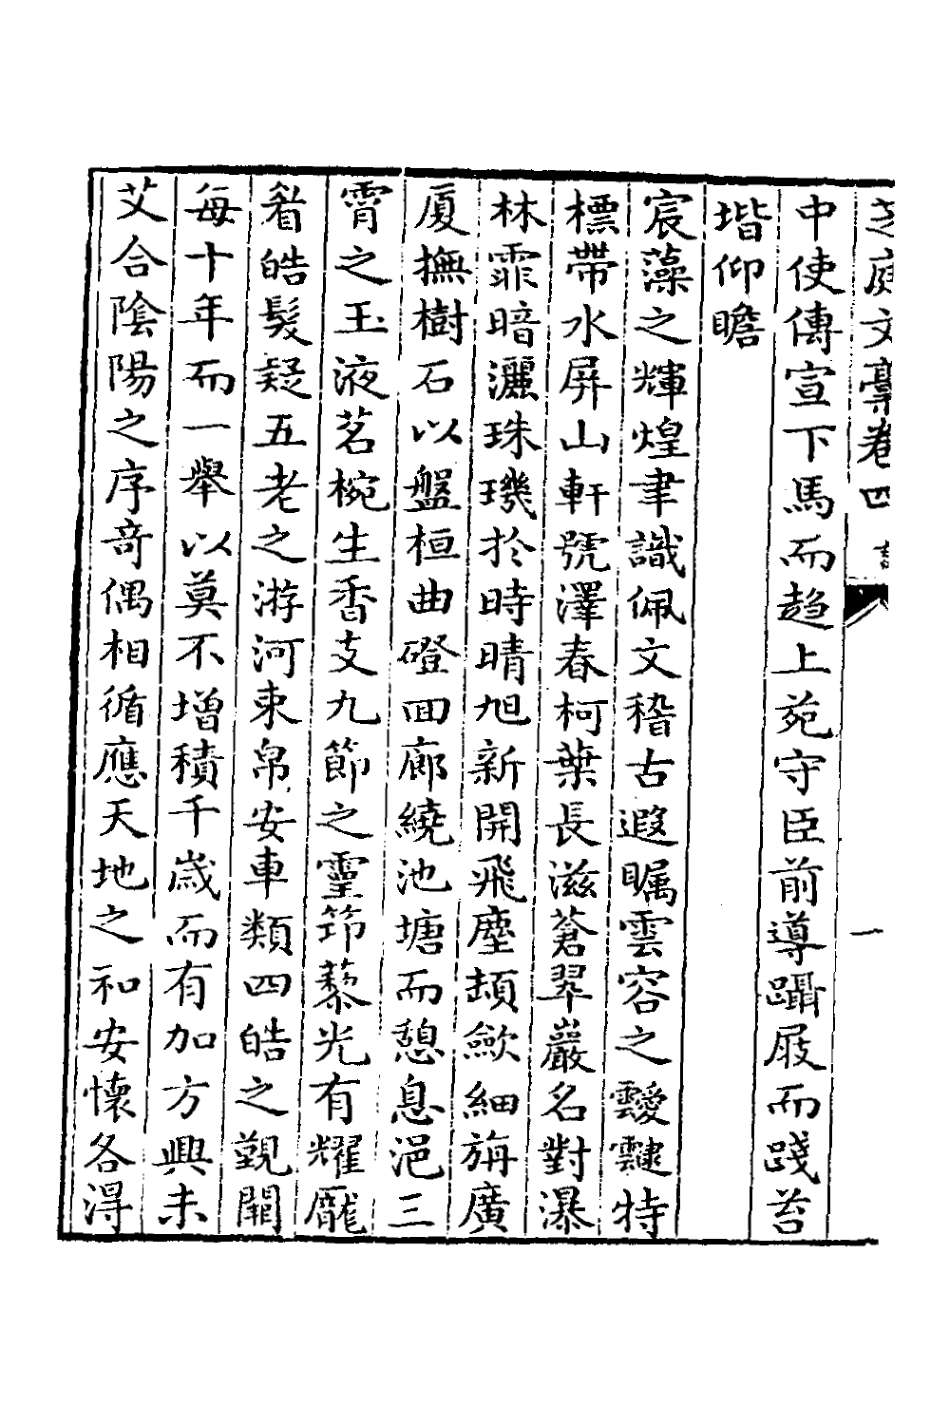 芝庭文藁卷四 一
中使傳宣下馬而趋上苑守臣前導躡屐而踐苔
堦仰瞻
宸藻之輝煌聿識佩文稽古遐矚雲容之靉靆特
標帶水屏山軒號澤春柯葉長滋蒼翠巖名對瀑
林霏暗灑珠璣於時晴旭新開飛塵頓歛細旃廣
厦撫樹石以盤桓曲磴回廊繞池塘而憩息浥三
霄之玉液茗椀生香支九節之靈笻藜光有耀龎
眉皓髮疑五老之游河束帛安車類四皓之覲闕
每十年而一舉以莫不增積千歲而有加方興未
艾合陰陽之序竒偶相循應天地之和安懷各得